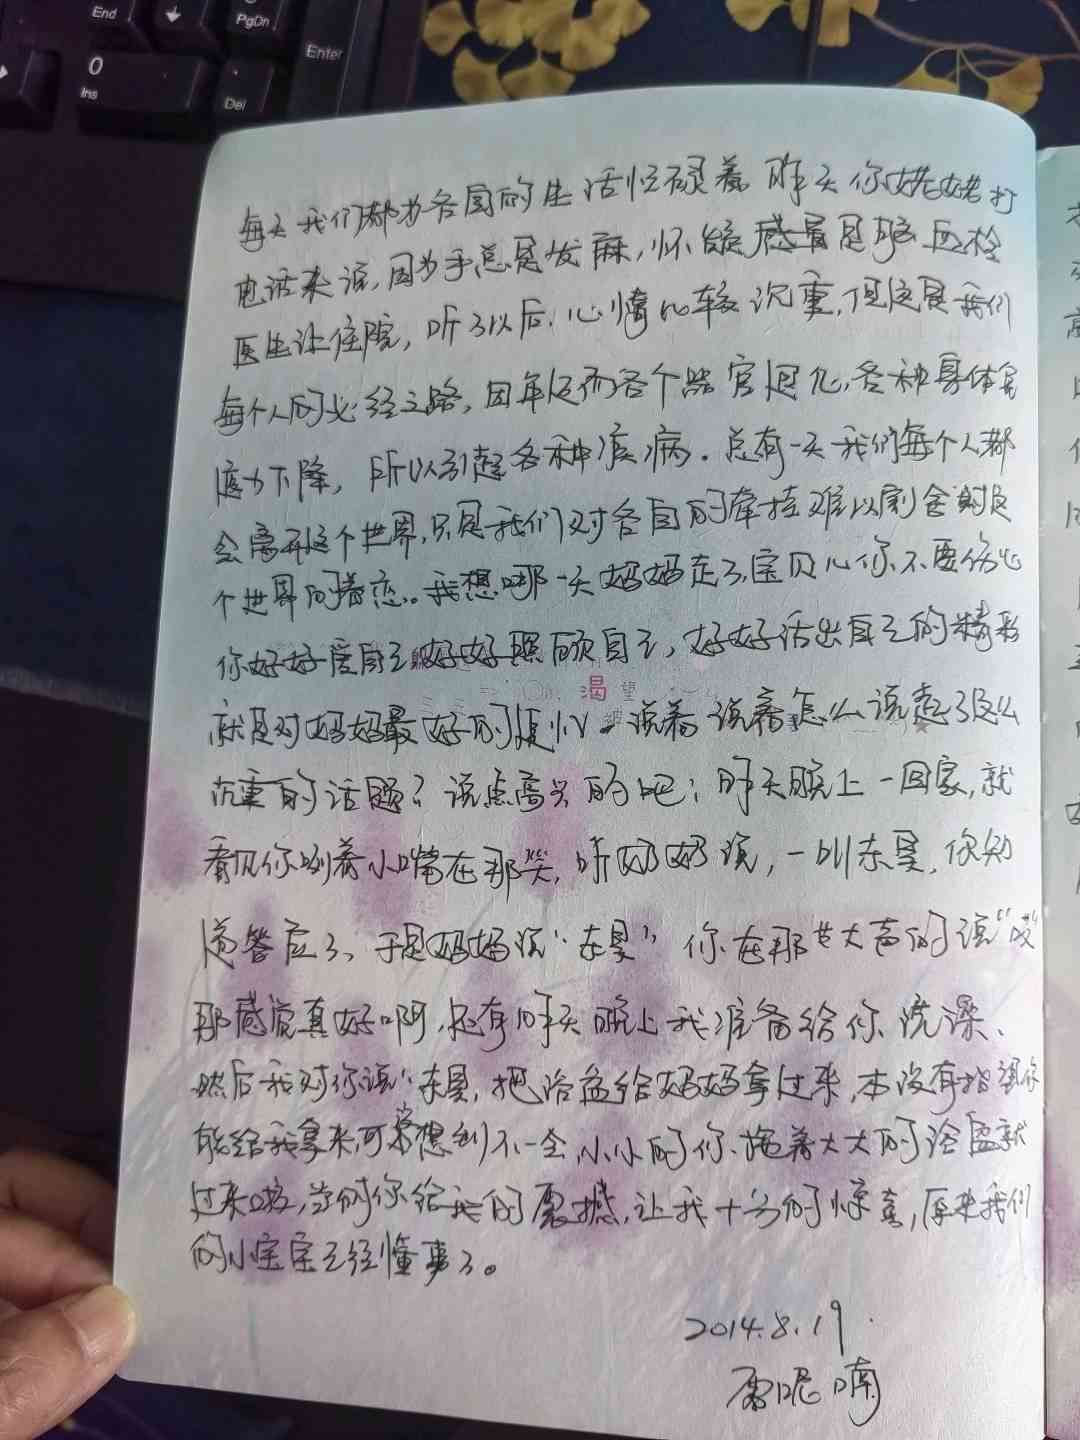 End
PgDn
Enter
0
Ins
Del
每天我们都为各自的生活忙碌着 昨天你姥姥打
电话来说,因为手总是发麻,怀疑感冒是脑 血栓
医生让住院,听了以后,心情比较沉重,但这是我们
每个人的必经之路,因年迈而各个器官退化,各种身体
下降,所以引起各种疾病。总有一天我们每个人都
会离开这个世界,只是我们对各自的牵挂难以割舍对这
个世界的眷恋。我想哪一天妈妈走了,宝贝儿你不要伤心
你好好度自己好好照顾自己,好好活出自己的精彩
渴望
就是对妈妈最好的 说着说着怎么说起了这么
沉重的话题?说点高兴的吧;昨天晚上一回家,就
看见你咧着小嘴在那笑,听奶奶说,一叫东昊,你知
道答应了,于是妈妈说“东昊”你在那大声的说“哎”
那感觉真好啊,还有昨天晚上我准备给你洗澡、
然后我对你说“东昊,把浴盆给妈妈拿过来,本没有指望你
能给我拿来,可 想到不一会,小小的你拖着大大的浴盆就
过来啦,当时你给我的震撼,让我十分的惊喜,原来我们
的小宝宝已经懂事了。
2014.8.19.
雷呢喃